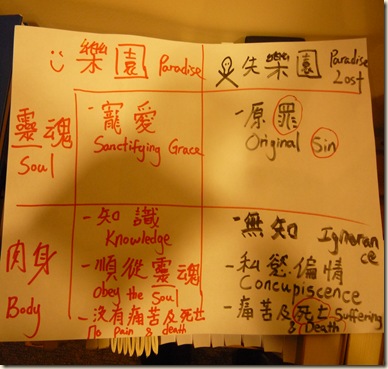 樂園 Paradise
失樂園 Paradise
Lost
靈魂
Soul
-寵愛
Sanctifying Grace
-原罪
Original Sin
肉身
Body
-知識
Knowledge
-順從靈魂
Obey the Soul
-沒有痛苦及死亡
No pain & death
-無知 Ignoran
ce
-私慾偏情
Concupiscence
-痛苦及死亡 Suffering
& Death